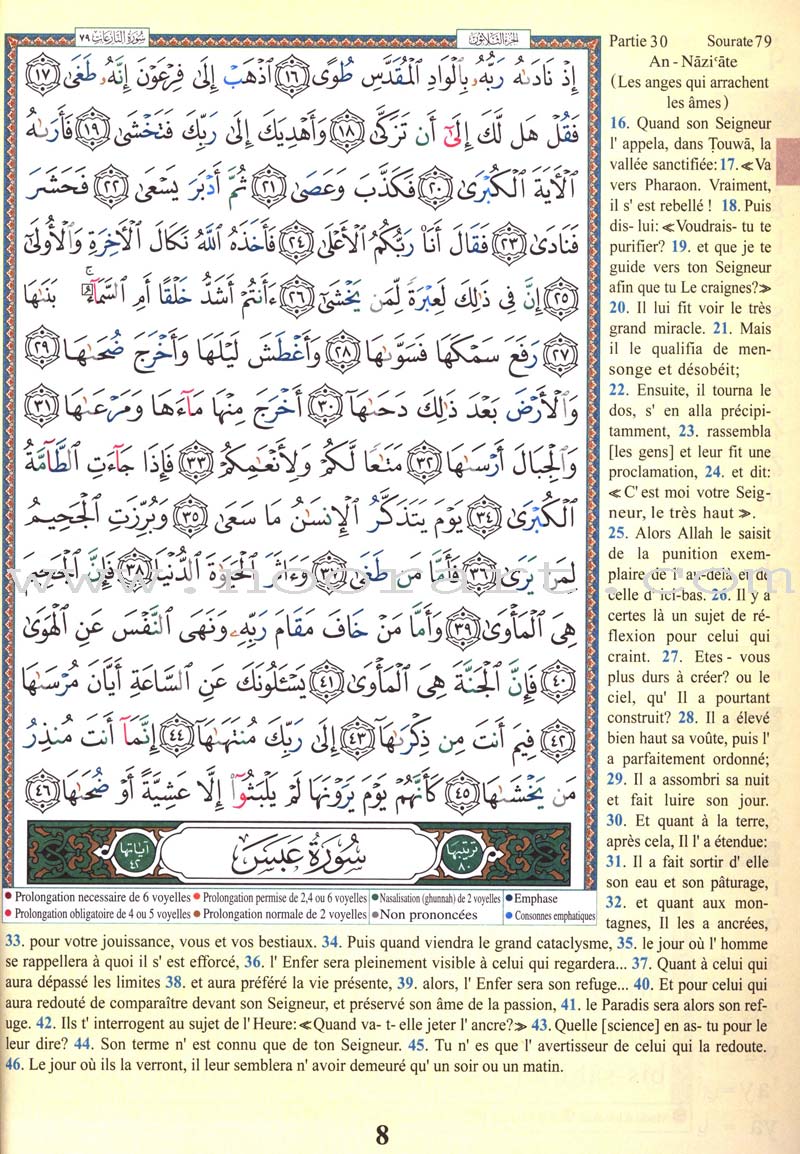 سُورَةُ النَّازِعَاتِ ٧٩
الجزء الثلاثون
إِذْ نَادَىٰهُ رَبُّهُۥ بِٱلْوَادِ ٱلْمُقَدَّسِ طُوًى ١٦ ٱذْهَبْ إِلَىٰ فِرْعَوْنَ إِنَّهُۥ طَغَىٰ ١٧
فَقُلْ هَل لَّكَ إِلَىٰٓ أَن تَزَكَّىٰ ١٨ وَأَهْدِيَكَ إِلَىٰ رَبِّكَ فَتَخْشَىٰ ١٩ فَأَرَىٰهُ
ٱلْـَٔايَةَ ٱلْكُبْرَىٰ ٢٠ فَكَذَّبَ وَعَصَىٰ ٢١ ثُمَّ أَدْبَرَ يَسْعَىٰ ٢٢ فَحَشَرَ
فَنَادَىٰ ٢٣ فَقَالَ أَنَا۠ رَبُّكُمُ ٱلْأَعْلَىٰ ٢٤ فَأَخَذَهُ ٱللَّهُ نَكَالَ ٱلْـَٔاخِرَةِ وَٱلْأُولَىٰٓ
٢٥ إِنَّ فِى ذَٰلِكَ لَعِبْرَةً لِّمَن يَخْشَىٰٓ ٢٦ ءَأَنتُمْ أَشَدُّ خَلْقًا أَمِ ٱلسَّمَآءُ ۚ بَنَىٰهَا
٢٧ رَفَعَ سَمْكَهَا فَسَوَّىٰهَا ٢٨ وَأَغْطَشَ لَيْلَهَا وَأَخْرَجَ ضُحَىٰهَا ٢٩
وَٱلْأَرْضَ بَعْدَ ذَٰلِكَ دَحَىٰهَآ ٣٠ أَخْرَجَ مِنْهَا مَآءَهَا وَمَرْعَىٰهَا ٣١
وَٱلْجِبَالَ أَرْسَىٰهَا ٣٢ مَتَٰعًا لَّكُمْ وَلِأَنْعَٰمِكُمْ ٣٣ فَإِذَا جَآءَتِ ٱلطَّآمَّةُ
ٱلْكُبْرَىٰ ٣٤ يَوْمَ يَتَذَكَّرُ ٱلْإِنسَٰنُ مَا سَعَىٰ ٣٥ وَبُرِّزَتِ ٱلْجَحِيمُ
لِمَن يَرَىٰ ٣٦ فَأَمَّا مَن طَغَىٰ ٣٧ وَءَاثَرَ ٱلْحَيَوٰةَ ٱلدُّنْيَا ٣٨ فَإِنَّ ٱلْجَحِيمَ
www.noorart.com
هِىَ ٱلْمَأْوَىٰ ٣٩ وَأَمَّا مَنْ خَافَ مَقَامَ رَبِّهِۦ وَنَهَى ٱلنَّفْسَ عَنِ ٱلْهَوَىٰ
٤٠ فَإِنَّ ٱلْجَنَّةَ هِىَ ٱلْمَأْوَىٰ ٤١ يَسْـَٔلُونَكَ عَنِ ٱلسَّاعَةِ أَيَّانَ مُرْسَىٰهَا
٤٢ فِيمَ أَنتَ مِن ذِكْرَىٰهَآ ٤٣ إِلَىٰ رَبِّكَ مُنتَهَىٰهَآ ٤٤ إِنَّمَآ أَنتَ مُنذِرُ
مَن يَخْشَىٰهَا ٤٥ كَأَنَّهُمْ يَوْمَ يَرَوْنَهَا لَمْ يَلْبَثُوٓا۟ إِلَّا عَشِيَّةً أَوْ ضُحَىٰهَا ٤٦
ترتيبها ٨٠
سُورَةُ عَبَسَ
آياتها ٤٢
Prolongation necessaire de 6 voyelles
Prolongation permise de 2,4 ou 6 voyelles
Nasalisation (ghunnah) de 2 voyelles
Emphase
Prolongation obligatoire de 4 ou 5 voyelles
Prolongation normale de 2 voyelles
Non prononcées
Consonnes emphatiques
Partie 30 Sourate 79
An - Nāzi'āte
(Les anges qui arrachent
les âmes)
16. Quand son Seigneur
l' appela, dans Ṭouwā, la
vallée sanctifiée: 17. ≪Va
vers Pharaon. Vraiment,
il s' est rebellé ! 18. Puis
dis- lui: ≪Voudrais- tu te
purifier? 19. et que je te
guide vers ton Seigneur
afin que tu Le craignes?≫
20. Il lui fit voir le très
grand miracle. 21. Mais
il le qualifia de men-
songe et désobéit;
22. Ensuite, il tourna le
dos, s' en alla précipi-
tamment, 23. rassembla
[les gens] et leur fit une
proclamation, 24. et dit:
≪C' est moi votre Seig-
neur, le très haut ≫.
25. Alors Allah le saisit
de la punition exem-
plaire de l' au-delà et de
celle d' ici-bas. 26. Il y a
certes là un sujet de ré-
flexion pour celui qui
craint. 27. Etes - vous
plus durs à créer? ou le
ciel, qu' Il a pourtant
construit? 28. Il a élevé
bien haut sa voûte, puis l'
a parfaitement ordonné;
29. Il a assombri sa nuit
et fait luire son jour.
30. Et quant à la terre,
après cela, Il l' a étendue:
31. Il a fait sortir d' elle
son eau et son pâturage,
32. et quant aux mon-
tagnes, Il les a ancrées,
33. pour votre jouissance, vous et vos bestiaux. 34. Puis quand viendra le grand cataclysme, 35. le jour où l' homme
se rappellera à quoi il s' est efforcé, 36. l' Enfer sera pleinement visible à celui qui regardera... 37. Quant à celui qui
aura dépassé les limites 38. et aura préféré la vie présente, 39. alors, l' Enfer sera son refuge... 40. Et pour celui qui
aura redouté de comparaître devant son Seigneur, et préservé son âme de la passion, 41. le Paradis sera alors son ref-
uge. 42. Ils t' interrogent au sujet de l' Heure: ≪Quand va- t- elle jeter l' ancre?≫ 43. Quelle [science] en as- tu pour le
leur dire? 44. Son terme n' est connu que de ton Seigneur. 45. Tu n' es que l' avertisseur de celui qui la redoute.
46. Le jour où ils la verront, il leur semblera n' avoir demeuré qu' un soir ou un matin.
8